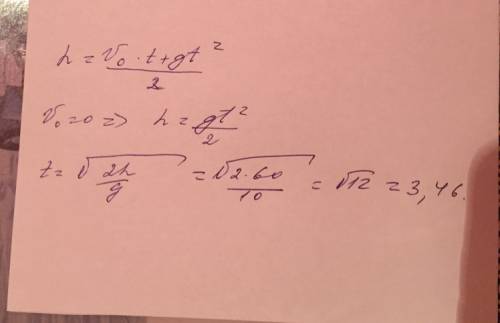 h = V₀·t+gt² / 2
V₀=0 => h = gt²/2
t = √(2h/g) = √(2·60/10) = √12 = 3,46.